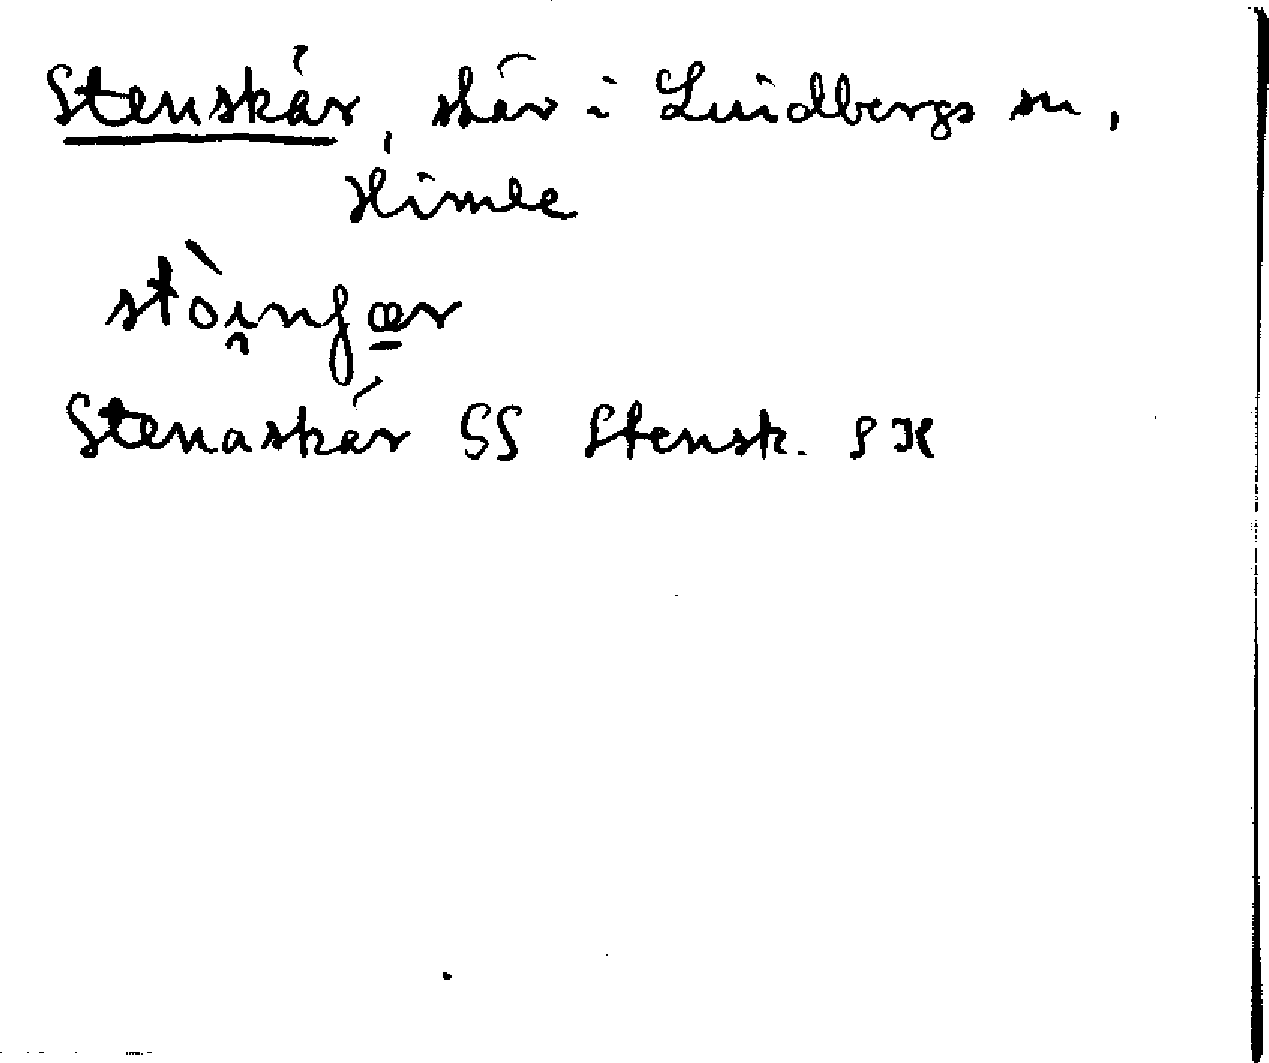 Stenskär, skär i Lindbergs sn,
Himle
Stenaskär SS Stensk. SK